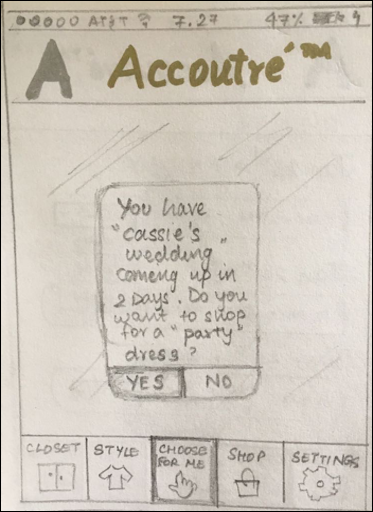 AT&T 7.27 47%
A Accoutré™
You have
"cassie's
wedding"
comeng up in
2 Days. Do you
want to shop
for a "party"
dress?
YES NO
CLOSET STYLE CHOOSE FOR ME SHOP SETTINGS